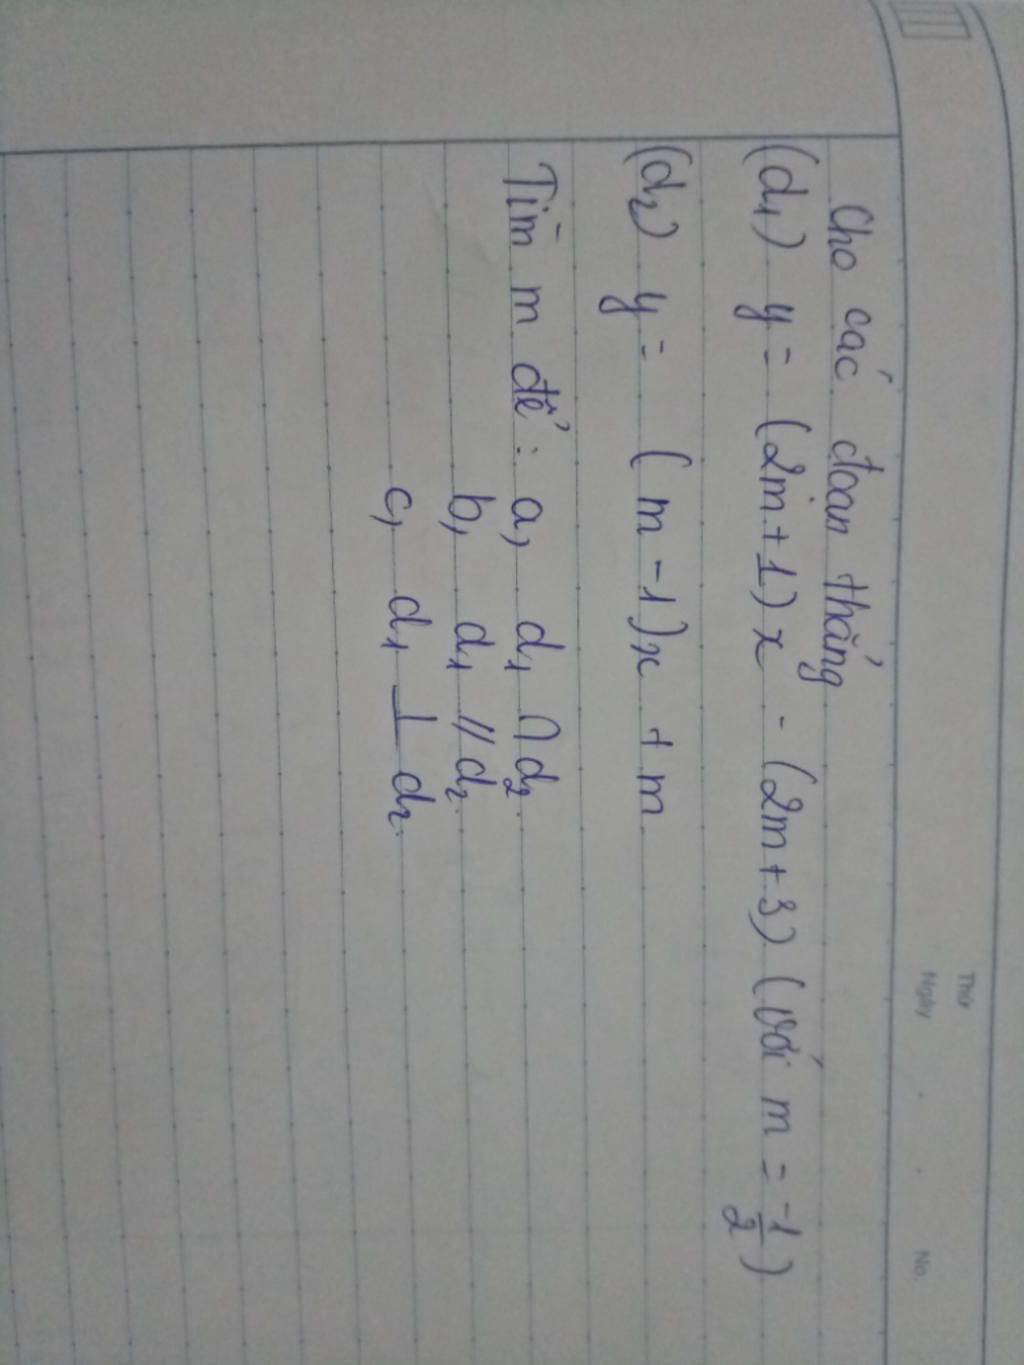 Thứ
Ngày . . No.
Cho các đoạn thẳng
(d1) y = (2m+1)x - (2m+3) (với m = -1/2)
(d2) y = (m-1)x + m
Tìm m để : a, d1 ∩ d2
b, d1 // d2
c, d1 ⊥ d2